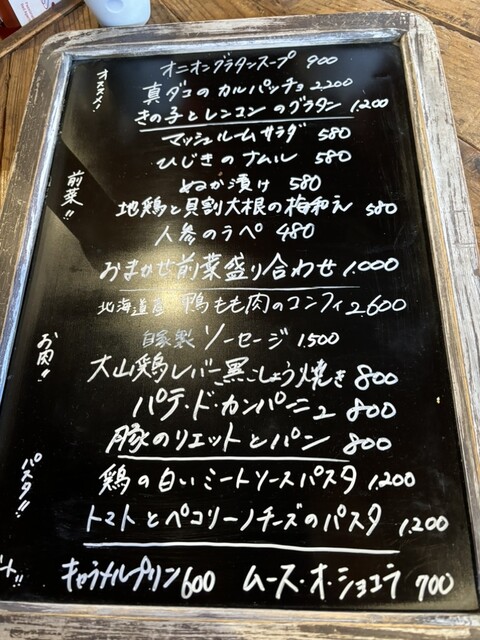 オススメ!
オニオングラタンスープ 900
真ダコのカルパッチョ 2,200
きの子とレンコンのグラタン 1,200
前菜!!
マッシュルームサラダ 580
ひじきのナムル 580
ぬか漬け 580
地鶏と貝割大根の梅和え 580
人参のラペ 480
おまかせ前菜盛り合わせ 1,000
お肉!!
北海道産 鴨もも肉のコンフィ 2600
自家製 ソーセージ 1,500
大山鶏レバー黒こしょう焼き 800
パテ・ド・カンパーニュ 800
豚のリエットとパン 800
パスタ!!
鶏の白いミートソースパスタ 1,200
トマトとペコリーノチーズのパスタ 1,200
ート!!
キャラメルプリン 600 ムース・オ・ショコラ 700